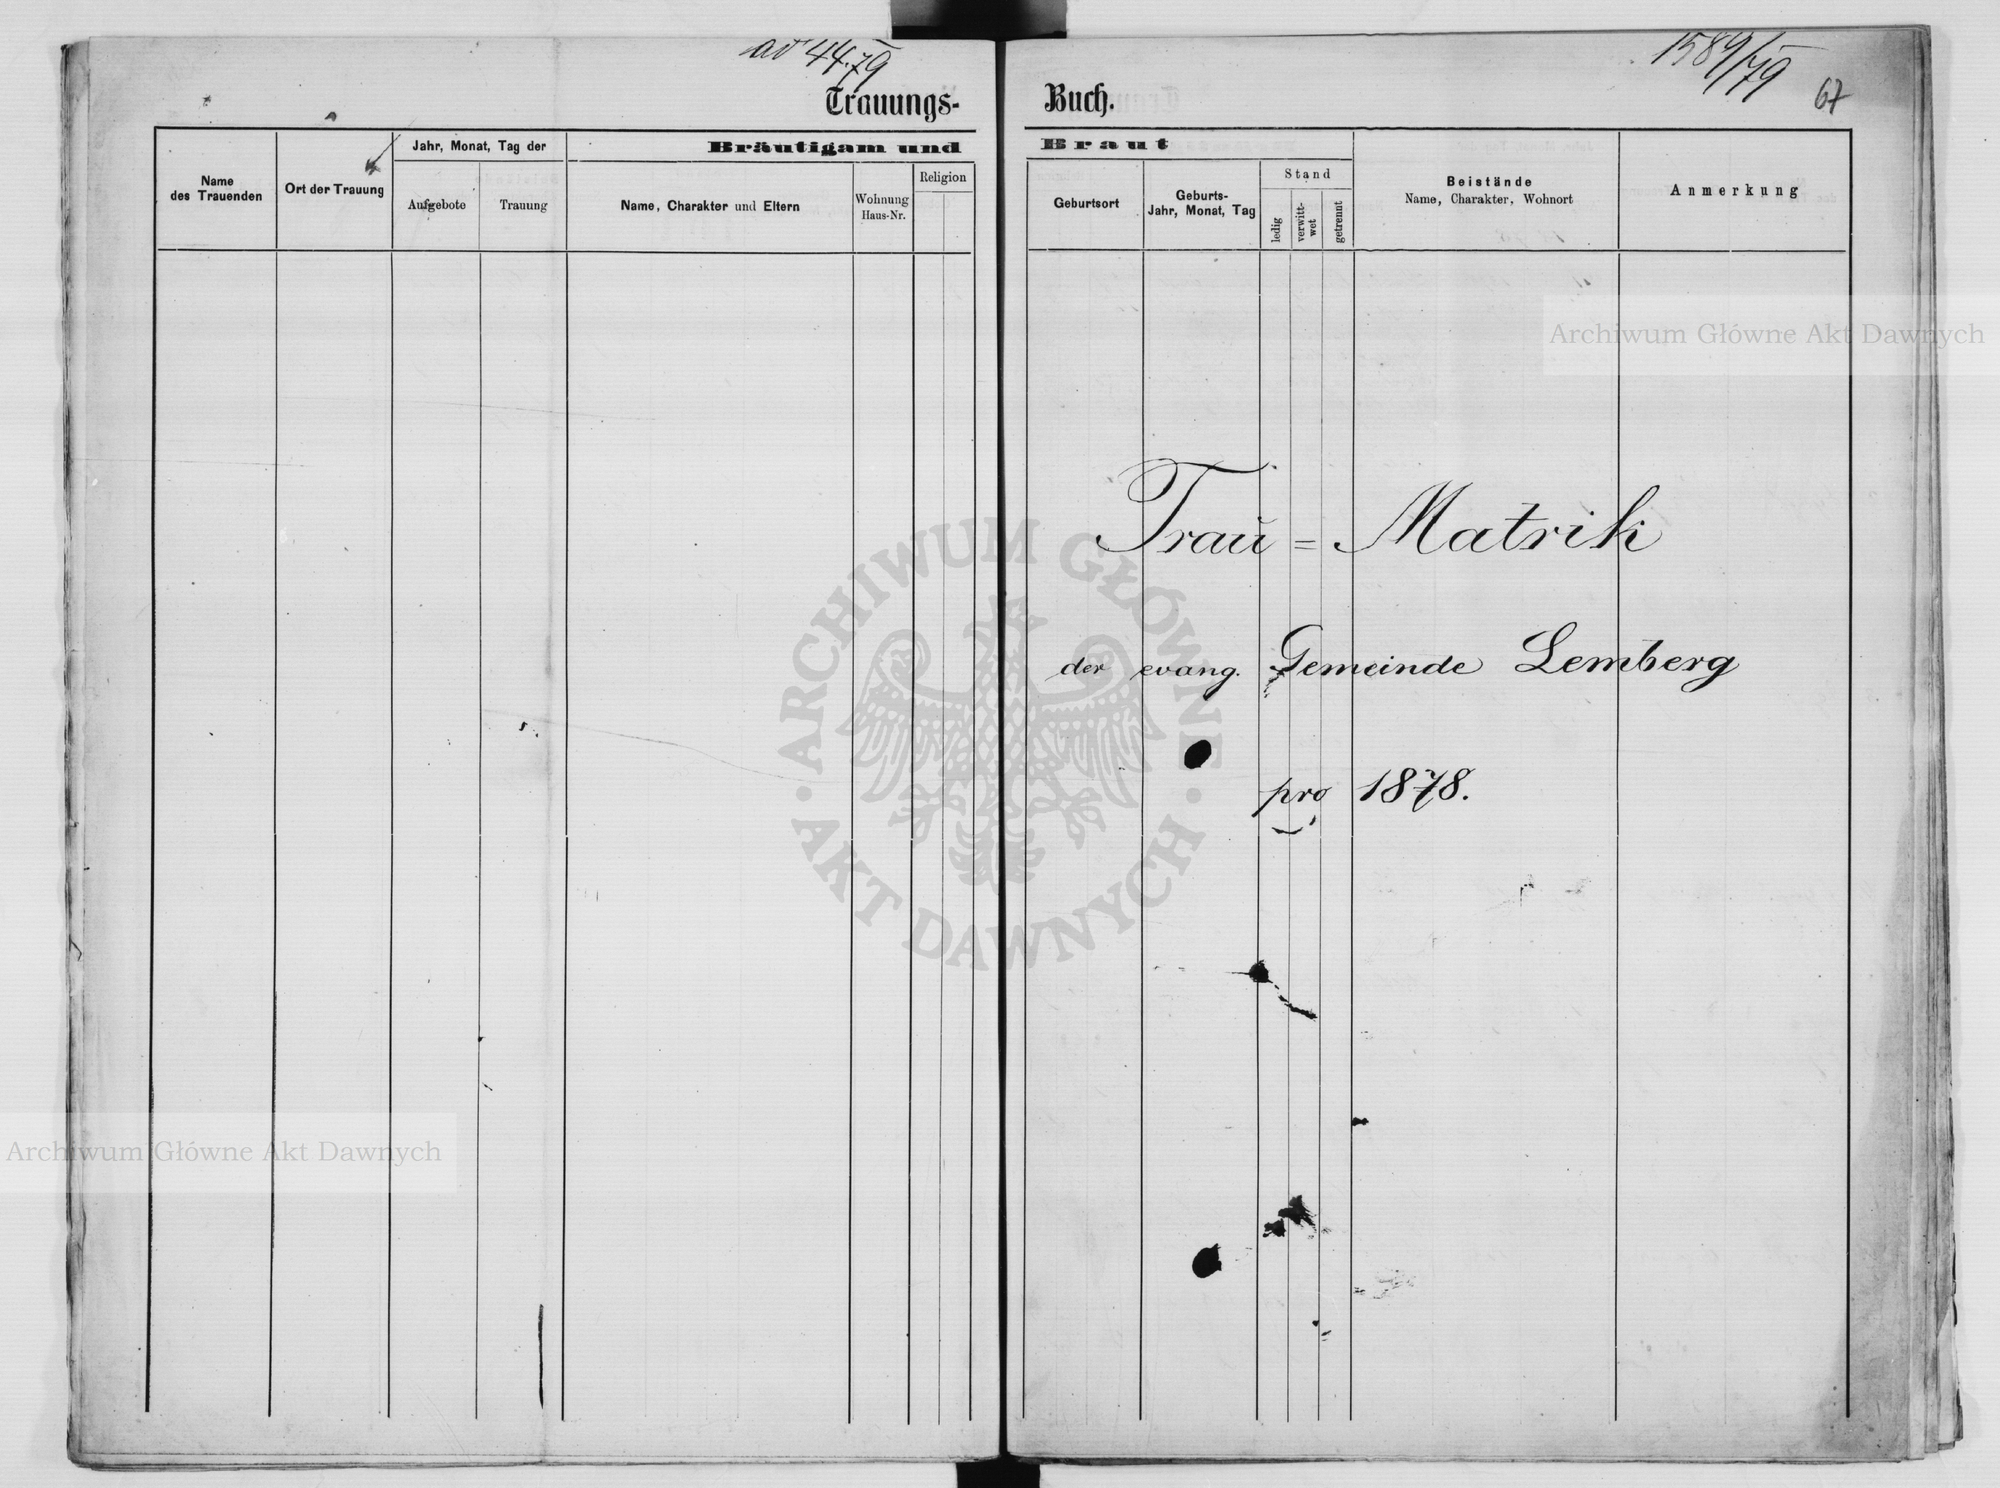 ad 44.79
Trauungs-
Name
des Trauenden
Ort der Trauung
Jahr, Monat, Tag der
Aufgebote
Trauung
Bräutigam und
Name, Charakter und Eltern
Wohnung
Haus-Nr.
Religion
1589/79
67
Buch.
Braut
Geburtsort
Geburts-
Jahr, Monat, Tag
Stand
ledig
verwitt-
wet
getrennt
Beistände
Name, Charakter, Wohnort
Anmerkung
Trau = Matrik
der evang. Gemeinde Lemberg
pro 1878.
Archiwum Główne Akt Dawnych
ARCHIWUM GŁÓWNE
AKT DAWNYCH
Archiwum Główne Akt Dawnych